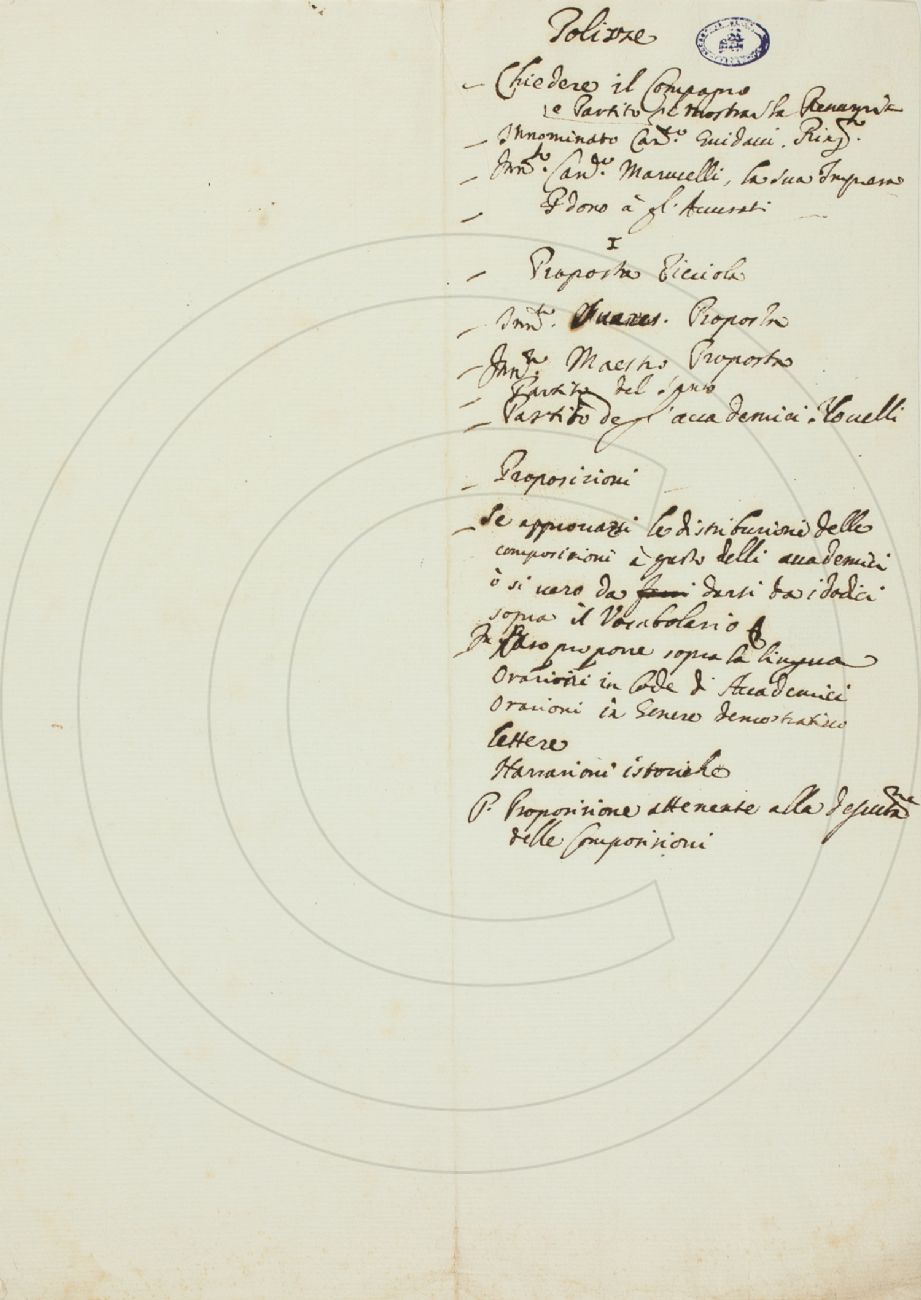 Polizze
– Chiedere il Compagno
e Partito se mostrar la Renunzia
– Innominato Can.co Guidacci. Ring.to
– Inn.to Can.co Marucelli, la sua Impresa
– Pdono à gl' Accurati
I
– Proposta Ticciola
– Inn.to Suares. Proposta
– Inn.to Maestro Proposta
– Partito del
– Partito degl' accademici Novelli
– Proposizioni
– Se approvarsi le distribuzione delle
composizioni à gusto delli accademici
ò si vero da darsi da i dodici
sopra il Vocabolario
In Caso propone sopra la lingua
Orazioni in lode di Accademici
Orazioni in Genere demostrativo
lettere
Narrazioni istoriche
P. Proposizione attenente alla
delle Composizioni